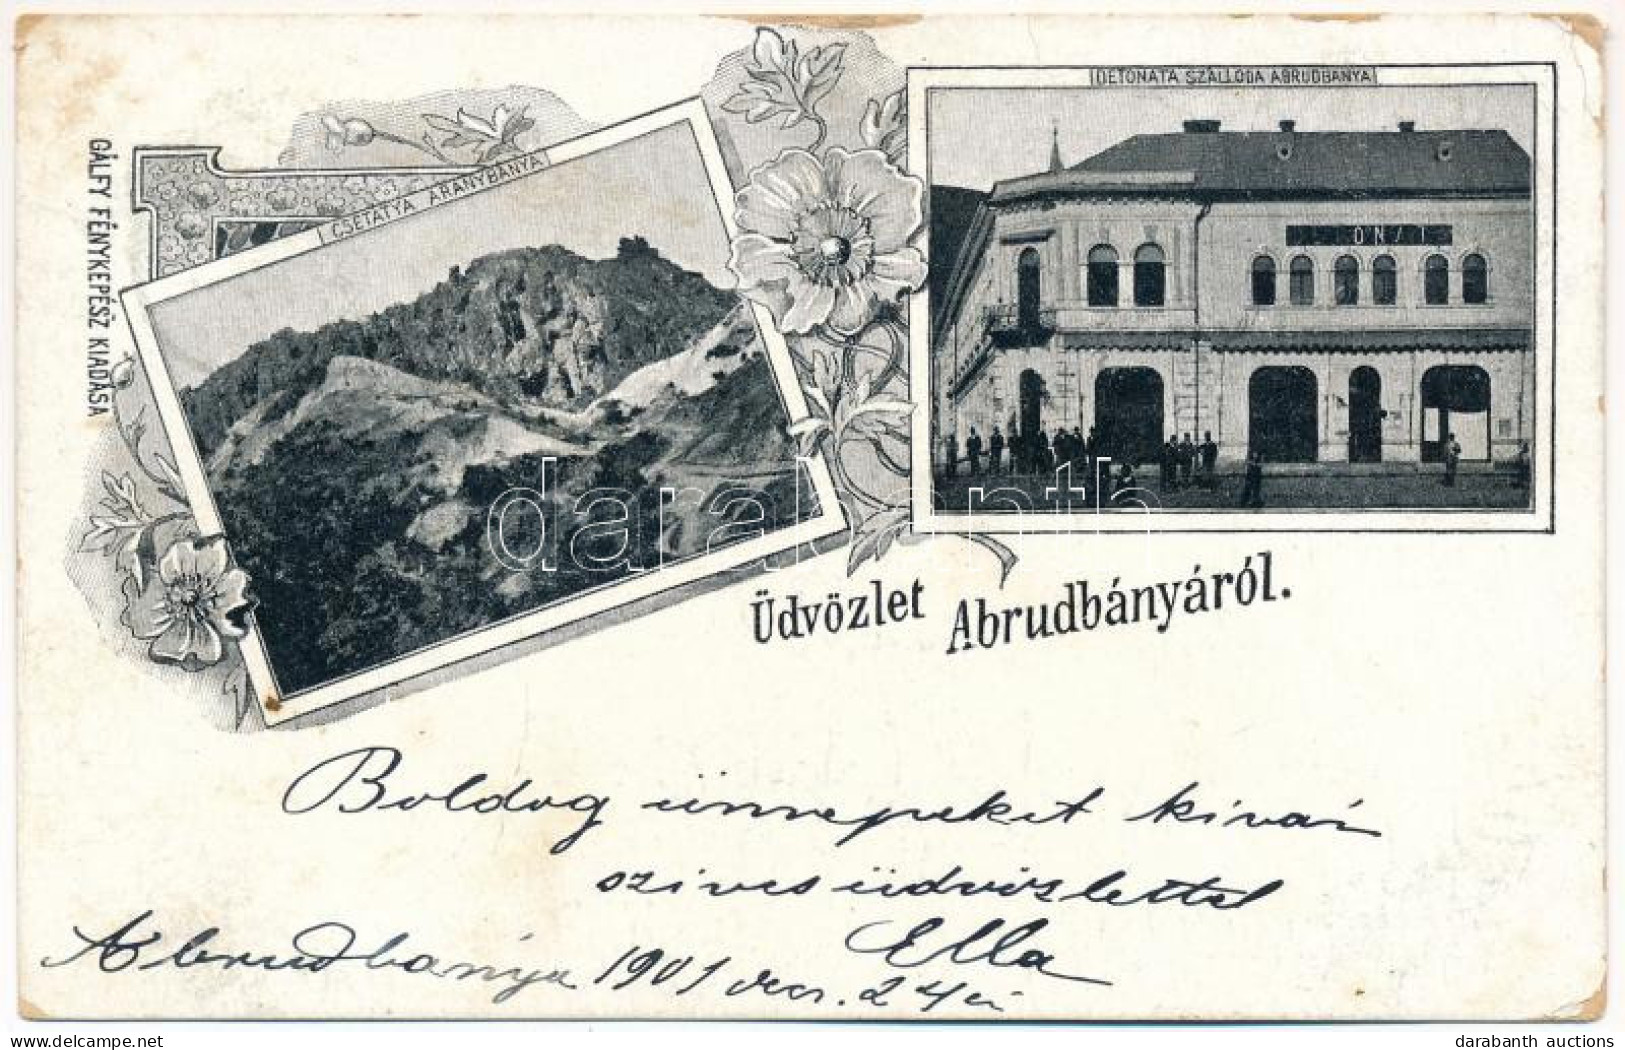 DETONATA SZÁLLODA ABRUDBÁNYA
CSETATYA ARANYBÁNYA
GÁLFY FÉNYKEPÉSZ KIADÁSA
Üdvözlet Abrudbányáról.
Boldog ünnepeket kíván
szives üdvözlettel
Ella
Abrudbánya 1901 dec. 24én
darabanth
darabanth auctions